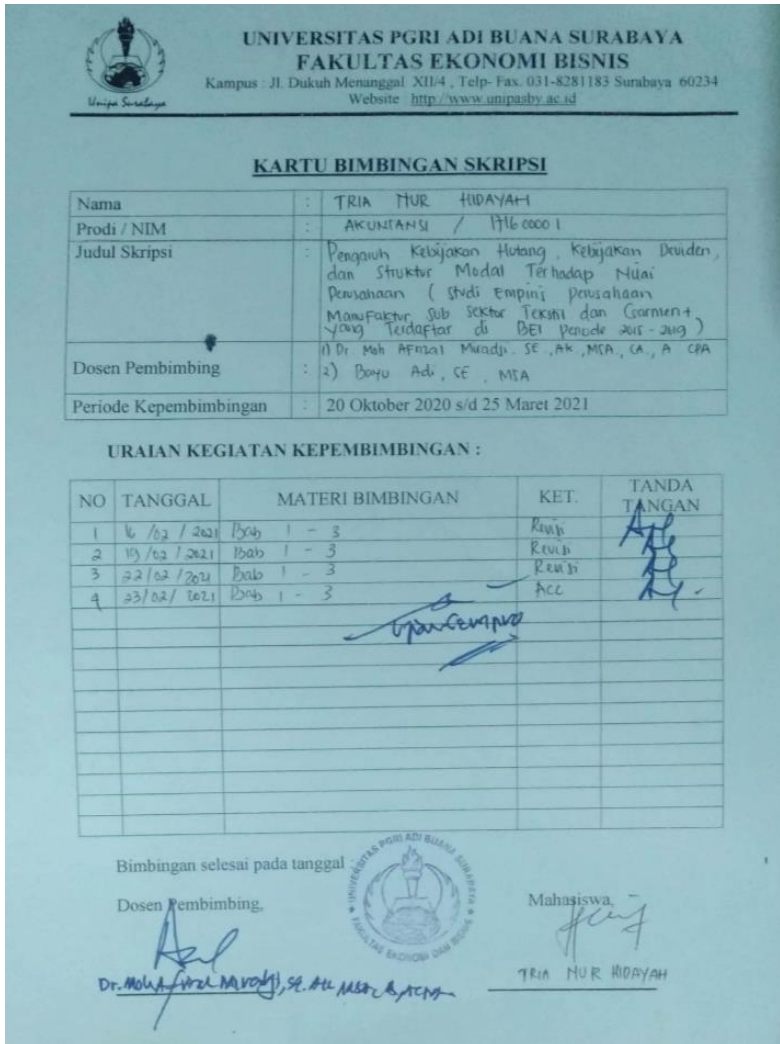 UNIVERSITAS PGRI ADI BUANA SURABAYA
FAKULTAS EKONOMI BISNIS
Kampus : Jl. Dukuh Menanggal XII/4 , Telp- Fax. 031-8281183 Surabaya 60234
Website : http://www.unipasby.ac.id
Unipa Surabaya
KARTU BIMBINGAN SKRIPSI
Nama : TRIA NUR HIDAYAH
Prodi / NIM : AKUNTANSI / 171600001
Judul Skripsi : Pengaruh Kebijakan Hutang, Kebijakan Deviden,
dan Struktur Modal Terhadap Nilai
Perusahaan ( Studi Empiris perusahaan
Manufaktur Sub Sektor Tekstil dan Garment
yang Terdaftar di BEI Periode 2015 - 2019 )
Dosen Pembimbing : 1) Dr. Moh Afrizal Miradji. SE ., AK ., MSA ., CA ., A CPA
2) Bayu Adi, SE , MSA
Periode Kepembimbingan : 20 Oktober 2020 s/d 25 Maret 2021
URAIAN KEGIATAN KEPEMBIMBINGAN :
NO TANGGAL MATERI BIMBINGAN KET. TANDA TANGAN
1 16 /02 / 2021 Bab 1 - 3 Revisi
2 19 /02 / 2021 Bab 1 - 3 Revisi
3 22/02 /2021 Bab 1 - 3 Revisi
4 23/02/ 2021 Bab 1 - 3 Acc
Bimbingan selesai pada tanggal :
UNIVERSITAS PGRI ADI BUANA SURABAYA
FAKULTAS EKONOMI DAN BISNIS
Dosen Pembimbing,
Mahasiswa,
TRIA NUR HIDAYAH